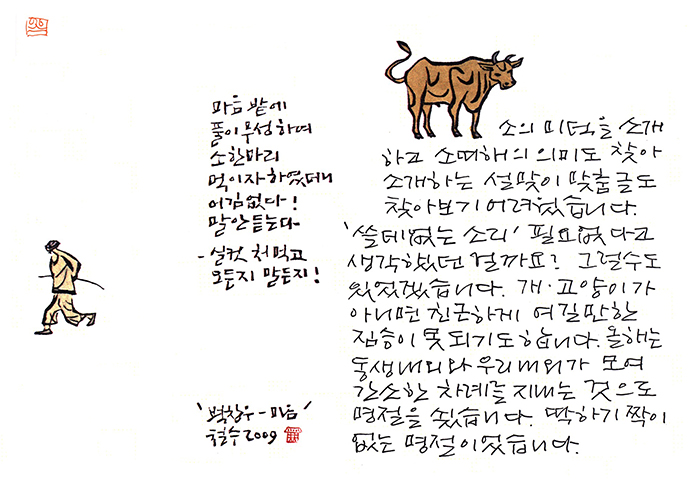 마음 밭에
풀이 무성하여
소한마리
먹이자 하였더니
어김없다!
말안듣는다.
- 실컷 처먹고
오든지 말든지!
'벽창우 - 마음'
철수 2009
소의 미덕을 소개
하고 소띠해의 의미도 찾아
소개하는 설맞이 맞춤글도
찾아보기 어려웠습니다.
'쓸데없는 소리' 필요없다고
생각했던 걸까요? 그럴수도
있었겠습니다. 개·고양이가
아니면 친근하게 여길만한
짐승이 못 되기도 합니다. 올해는
동생내외와 우리내외가 모여
간소한 차례를 지내는 것으로
명절을 쇴습니다. 딱하기 짝이
없는 명절이었습니다.